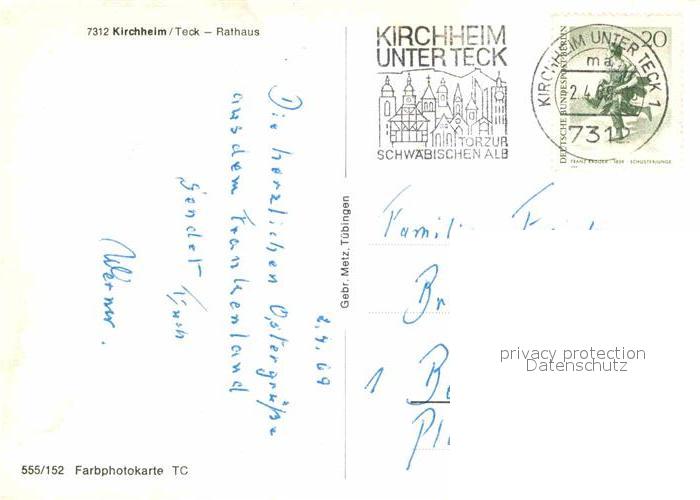 7312 Kirchheim/Teck – Rathaus
KIRCHHEIM
UNTER TECK
TOR ZUR
SCHWÄBISCHEN ALB
KIRCHHEIM UNTER TECK 1
ma
2.4.69
7312
20
DEUTSCHE BUNDESPOST BERLIN
FRANZ KRÜGER · SCHUSTERJUNGE
2.4.69
Die herzlichen Ostergrüße
aus dem Frankenland
sendet Euch
Werner.
Gebr. Metz, Tübingen
Famil
Br
1 Be
privacy protection
Datenschutz
555/152 Farbphotokarte TC